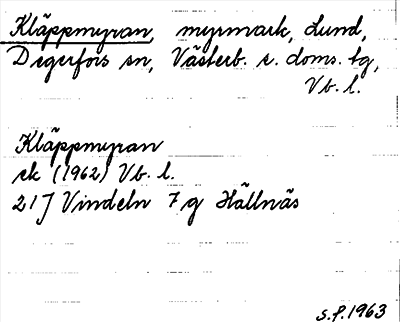 Kläppmyran, myrmark, Lund,
Degerfors sn, Västerb. v. doms. tg,
Vb. l.
Kläppmyran
ek (1962) Vb. l.
21 J Vindeln 7 g Hällnäs
S.f. 1963